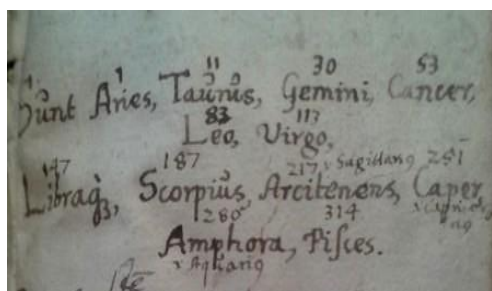 1 11 30 53
Sunt Aries, Taurus, Gemini, Cancer,
83 113
Leo, Virgo,
147 187 217 v Sagittarius 251
Libraq3, Scorpius, Arcitenens, Caper
280 314
Amphora, Pisces.
v Aquarius